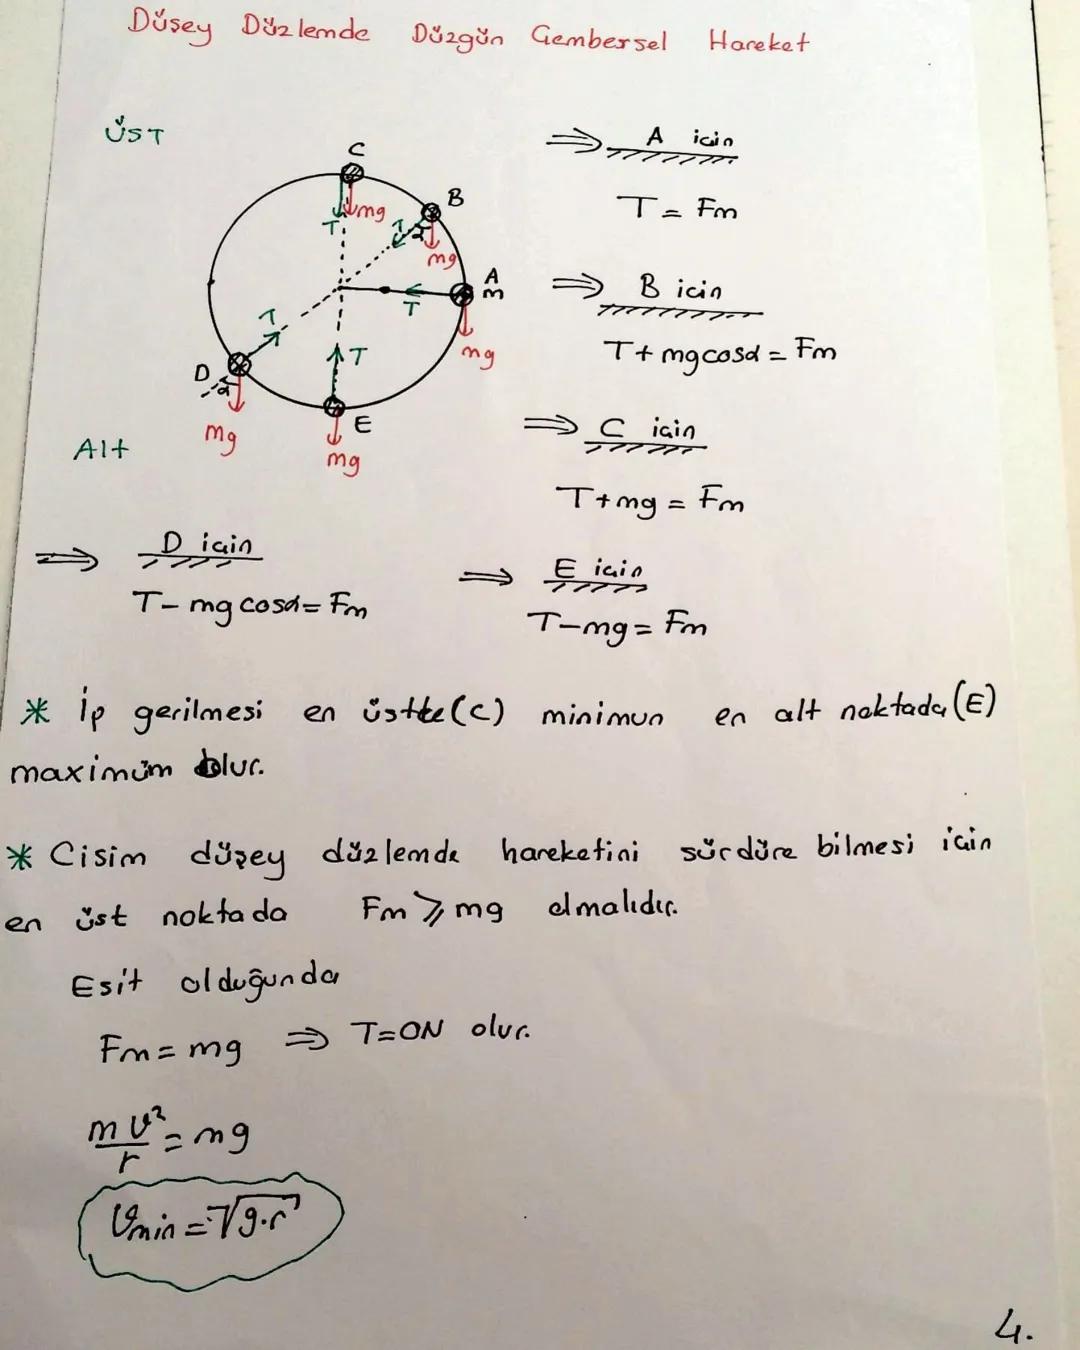 Düşey Düzlemde Düzgün Çembersel Hareket
ÜST
C
B
A
m
D
E
T
mg
T
α
mg
T
mg
T
α
mg
T
mg
Alt
⇒ A için
T = Fm
⇒ B için
T + mgcosα = Fm
⇒ C için
T + mg = Fm
⇒ D için
T - mg cosα = Fm
⇒ E için
T - mg = Fm
* İp gerilmesi en üstte (C) minimun en alt noktada (E)
maximüm olur.
* Cisim düşey düzlemde hareketini sürdüre bilmesi için
en üst noktada Fm ≥ mg olmalıdır.
Eşit olduğunda
Fm = mg ⇒ T=0N olur.
mv²/r = mg
Vmin = √g.r
4.